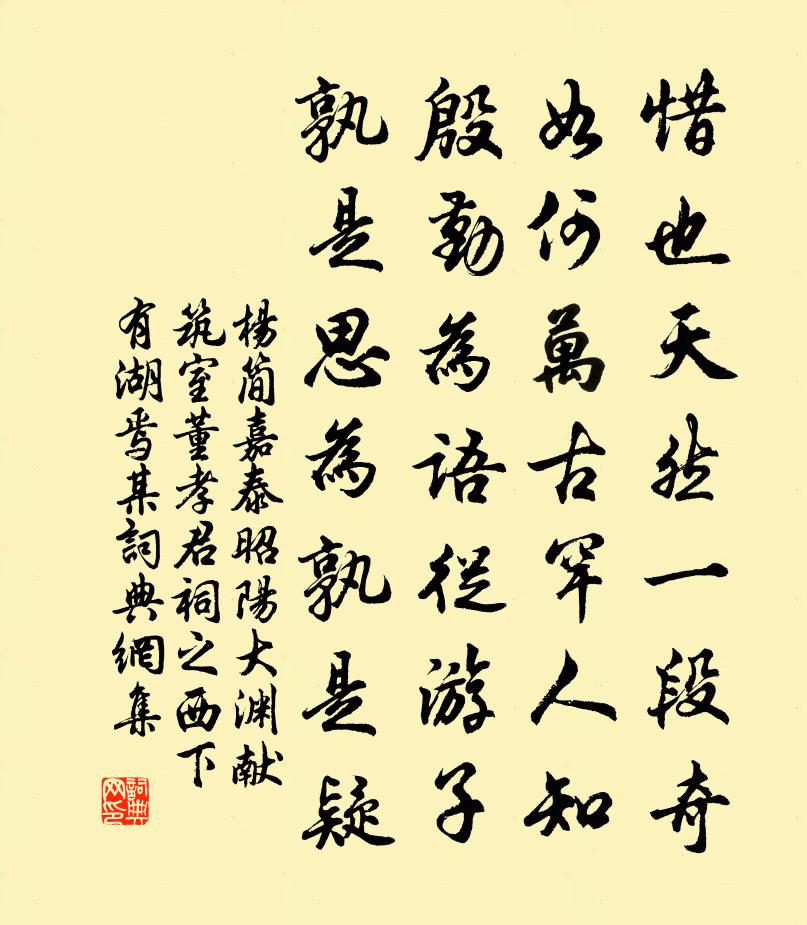 惜也天然一段奇
如何萬古罕人知
殷勤為語從游子
孰是思為孰是疑
楊简嘉泰昭陽大渊献
筑室董孝君祠之西下
有湖焉某詞典網集
詞典
网印